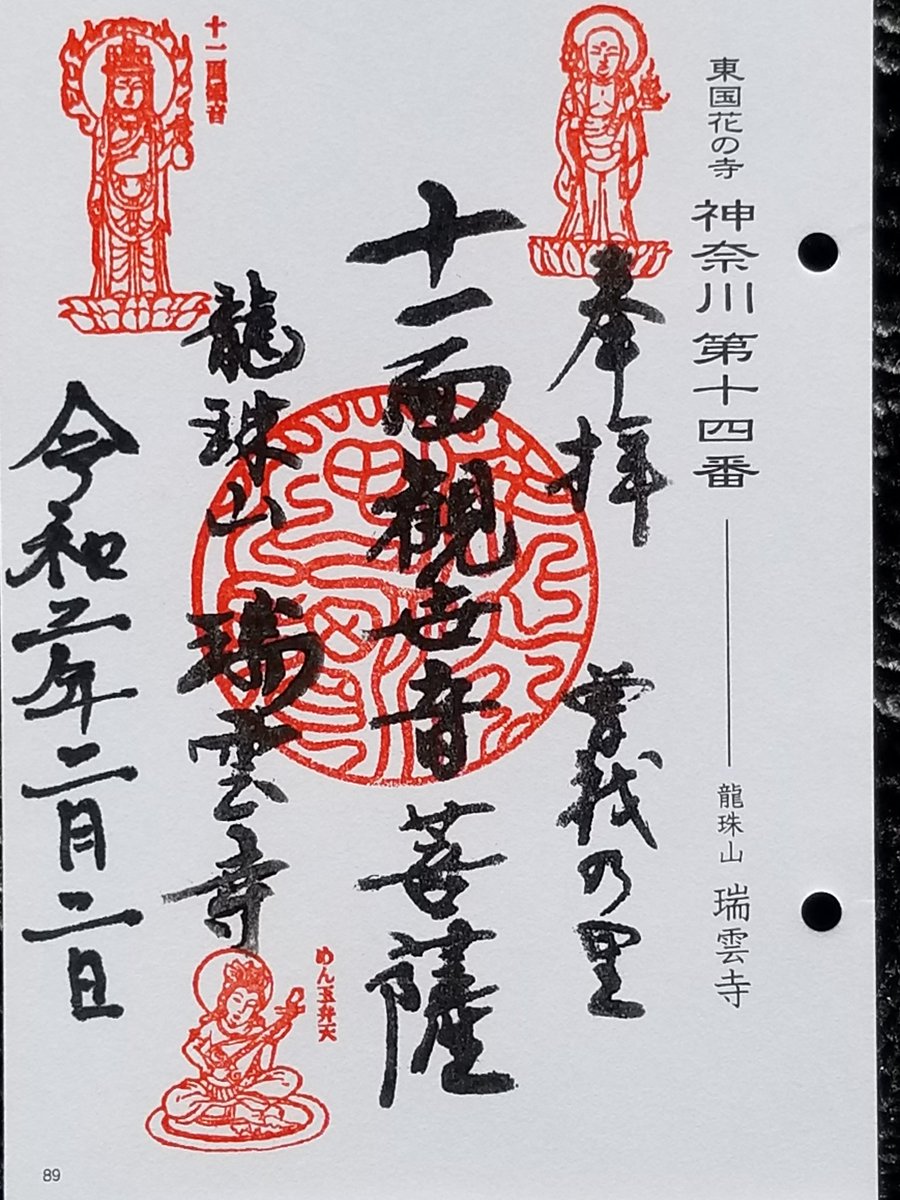 東国花の寺 神奈川第十四番
龍珠山 瑞雲寺
奉拝
曽我の里
十一面観世音菩薩
十一面観音
龍珠山 瑞雲寺
めん玉弁天
令和二年二月二日
89